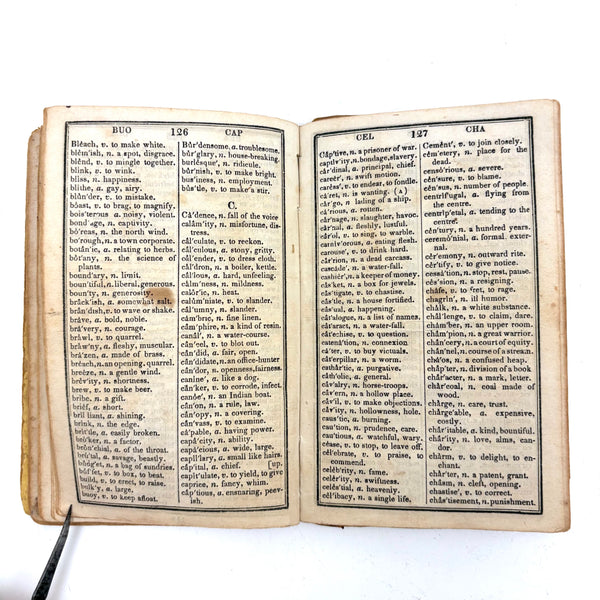 BUO 126 CAP
Blēach, v. to make white.
blĕm'ish, n. a spot, disgrace.
blĕnd, v. to mingle together.
blink, v. to wink.
bliss, n. happiness.
blithe, a. gay, airy.
blŭn'der, v. to mistake.
bōast, v. to brag, to magnify.
bois'ter-ous a. noisy, violent.
bond'age, n. captivity.
bō'reas, n. the north wind.
bo'rough, n. a town corporate.
botăn'ic, a. relating to herbs.
bŏt'any, n. the science of
plants.
bound'ary, n. limit.
boun'tiful, a. liberal, generous.
boun'ty, n. generosity.
brăck'ish, a. somewhat salt.
brăn'dish, v. to wave or shake.
brāve, a. bold, noble.
brā'very, n. courage.
brawl, v. to quarrel.
braw'ny, a. fleshy, muscular.
brā'zen, a. made of brass.
brēach, n. an opening, quarrel.
breēze, n. gentle wind.
brĕv'ity, n. shortness.
brew, v. to make beer.
bribe, n. a gift.
briēf, a. short.
bril'liant, a. shining.
brink, n. the edge.
brit'tle, a. easily broken.
brō'ker, n. a factor.
brŏn'chial, a. of the throat.
brū'tal, a. savage, beastly.
bŭdg'et, n. a bag of sundries.
bŭf'fet, v. to box, to beat.
build, v. to erect, to raise.
bulk'y, a. large.
buoy, v. to keep afloat.
Bŭr'densome, a. troublesome.
bŭr'glary, n. house-breaking.
burlĕsque', n. ridicule.
bŭr'nish, v. to make bright.
bus'iness, n. employment.
bŭs'tle, v. to make a stir.
C.
Cā'dence, n. fall of the voice
calăm'ity, n. misfortune, dis-
tress.
căl'culate, v. to reckon.
căl'culous, a. stony, gritty.
căl'ender, v. to dress cloth.
căl'dron, n. a boiler, kettle.
căl'lous, a. hard, unfeeling.
călm'ness, n. mildness.
calŏr'ic, n. heat.
calŭm'niate, v. to slander.
căl'umny, n. slander.
căm'phire, n. a kind of resin.
canăl', n. a water-course.
căn'cel, v. to blot out.
căn'did, a. fair, open.
căn'didate, n. an office-hunter
căn'dor, n. openness, fairness.
canine', a. like a dog.
căn'ker, v. to corrode, infect.
canōe', n. an Indian boat.
căn'on, n. a rule, law.
căn'opy, n. a covering.
căn'vass, v. to examine.
cā'pable, a. having power.
capăc'ity, n. ability.
capā'cious, a. wide, large.
capĭl'lary, a. small like hairs.
căp'ital, a. chief. [up.
capĭt'ulate, v. to yield, to give
caprice, n. fancy, whim.
căp'tious, a. ensnaring, peev-
ish.
CEL 127 CHA
Căp'tive, n. a prisoner of war.
captĭv'ity, n. bondage, slavery.
cār'dinal, a. principal, chief.
careēr', n. course, race.
carĕss', v. to endear, to fondle.
că'ret, n. is wanting. (Λ)
căr'go, n. lading of a ship.
cā'rious, a. rotten.
căr'nage, n. slaughter, havoc.
căr'nal, a. fleshly, lustful.
căr'ol, v. to sing, to warble.
carnĭv'orous, a. eating flesh.
carouse', v. to drink hard.
căr'rion, n. a dead carcass.
cascāde', n. a water-fall.
cashiēr', n. a keeper of money.
căs'ket, n. a box for jewels.
căs'tigate, v. to chastise.
căs'tle, n. a house fortified.
căs'ual, a. happening.
căt'alogue, n. a list of names.
căt'aract, n. a water-fall.
căt'echise, v. to question.
catenā'tion, n. connexion.
cā'ter, v. to buy victuals.
căt'erpillar, n. a worm.
cathăr'tic, a. purgative.
căth'olic, a. general.
căv'alry, n. horse-troops.
căv'ern, n. a hollow place.
căv'il, v. to make objections.
căv'ity, n. hollowness, hole.
caus'tic, a. burning.
cau'tion, n. prudence, care.
cau'tious, a. watchful, wary.
cēase, v. to stop, to leave off.
cĕl'ebrate, v. to praise,
commend.
celĕb'rity, n. fame.
celĕr'ity, n. swiftness.
celĕs'tial, a. heavenly.
cĕl'ibacy, n. a single life.
Cemĕnt', v. to join closely.
cĕm'etery, n. place for the
dead.
censō'rious, a. severe.
cĕn'sure, v. to blame.
cĕn'sus, n. number of people.
centrĭf'ugal, a. flying from
the centre.
centrĭp'etal, a. tending to the
centre.
cĕn'tury, n. a hundred years.
ceremō'nial, a. formal, exter-
nal.
cĕr'emony, n. outward rite.
cĕr'tify, v. to give notice.
cessā'tion, n. stop, rest, pause.
cĕs'sion, n. a resigning.
chāfe, v. to fret, to rage.
chagrin', n. ill humor.
chalk, n. a white substance.
chăl'lenge, v. to claim, dare.
chām'ber, n. an upper room.
chăm'pion, n. a great warrior.
chăn'cery, n. a court of equity.
chăn'nel, n. course of a stream.
chā'os, n. a confused heap.
chăp'ter, n. division of a book
chăr'acter, n. a mark, letter.
chăr'coal, n. coal made of
wood.
chărge, n. care, trust.
chărge'able, a. expensive,
costly.
chăr'itable, a. kind, bountiful.
chăr'ity, n. love, alms, can-
dor.
to chărm, v. to delight, to en-
chant.
chăr'ter, n. a patent, grant.
chăsm, n. cleft, opening.
chastise', v. to correct.
chăs'tisement, n. punishment.